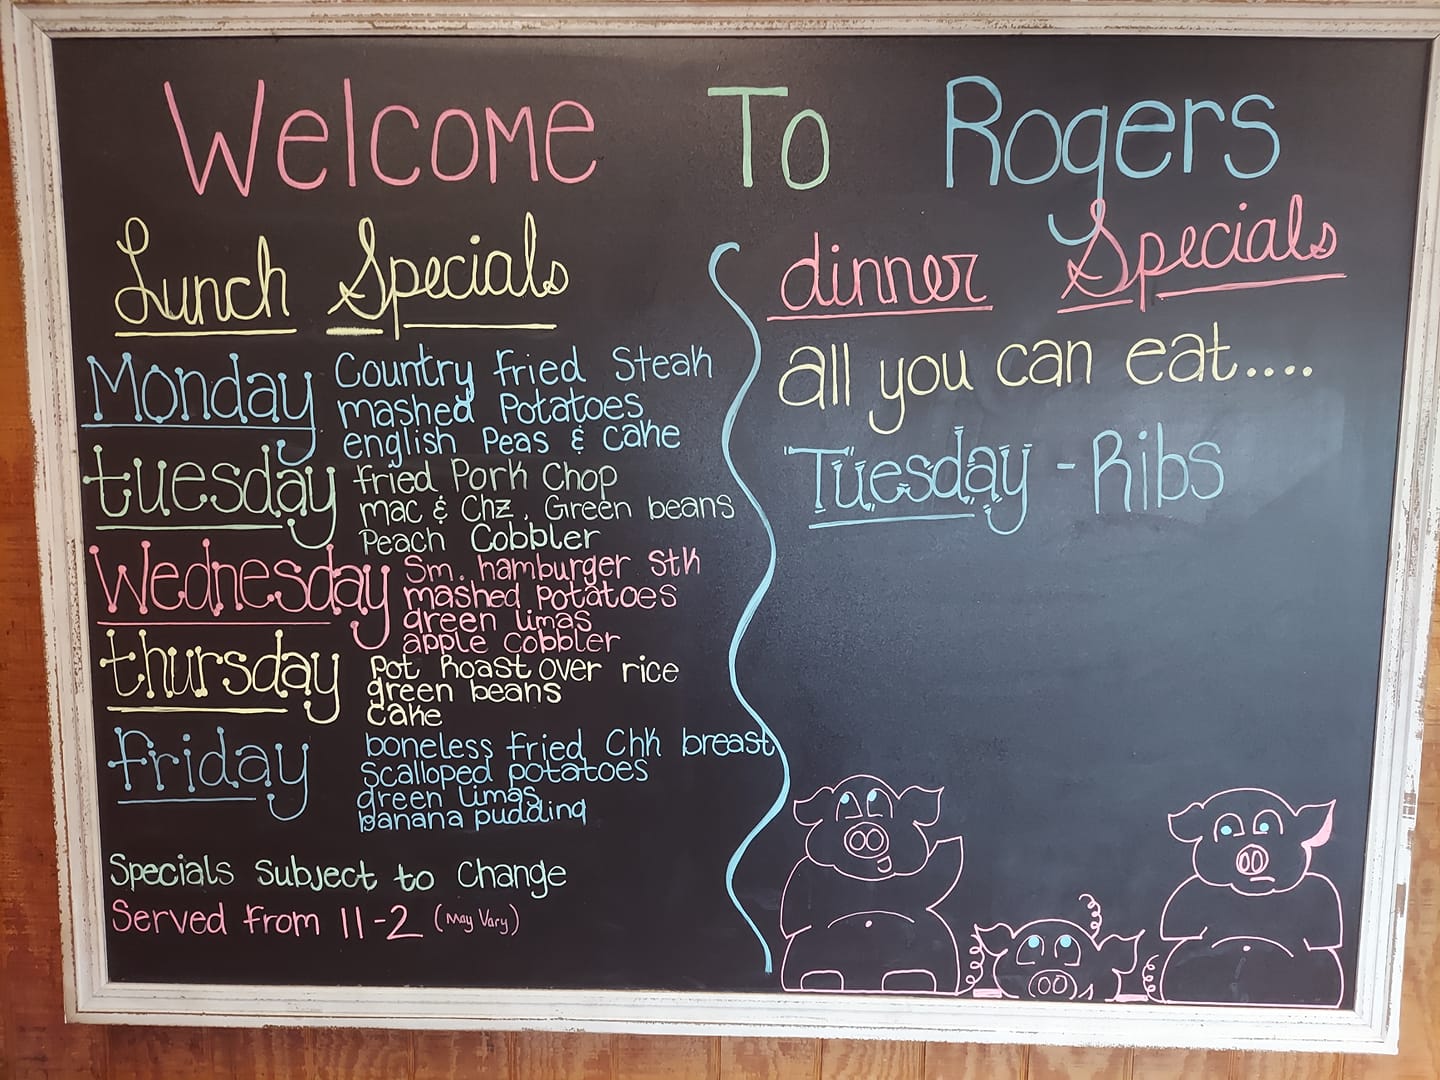 Welcome To Rogers
Lunch Specials
Monday Country fried Steak
mashed Potatoes
english Peas & Cake
tuesday fried Pork Chop
mac & Chz, Green beans
Peach Cobbler
Wednesday Sm. hamburger Stk
mashed potatoes
green limas
apple cobbler
thursday Pot Roast over rice
green beans
Cake
friday boneless fried Chk breast
Scalloped potatoes
green limas
banana pudding
Specials Subject to Change
Served from 11-2 (May Vary)
dinner Specials
all you can eat....
Tuesday - Ribs